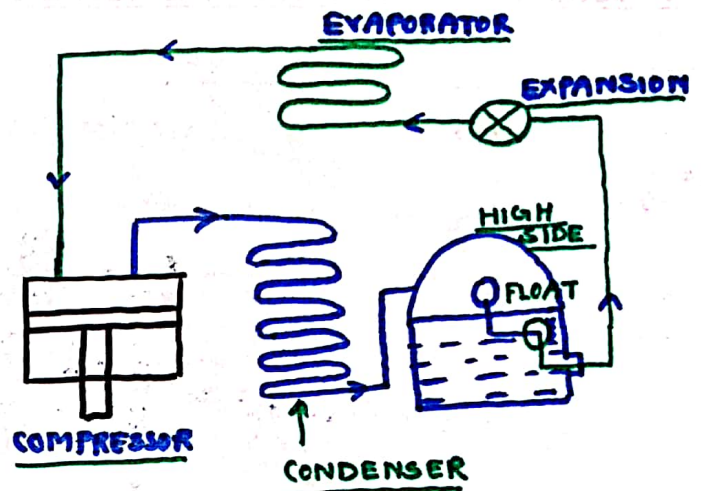 EVAPORATOR
EXPANSION
HIGH
SIDE
FLOAT
COMPRESSOR
CONDENSER